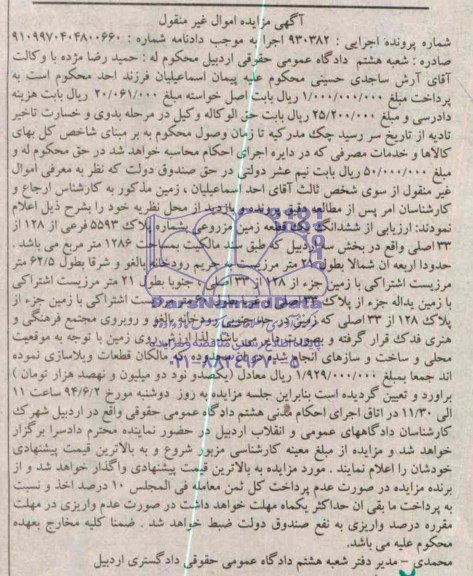 آگهی مزایده اموال غیر منقول
شماره پرونده اجرایی : ۹۳۰۳۸۲ اجرا به موجب دادنامه شماره : ۹۱۰۹۹۷۰۴۰۴۸۰۰۶۶۰
صادره : شعبه هشتم دادگاه عمومی حقوقی اردبیل محکوم له : حمید رضا مژده با وکالت
آقای آرش ساجدی حسینی محکوم علیه پیمان اسماعیلیان فرزند احد محکوم است به
پرداخت مبلغ ۱/۰۰۰/۰۰۰/۰۰۰ ریال بابت اصل خواسته مبلغ ۲۰/۰۶۱/۰۰۰ ریال بابت هزینه
دادرسی و مبلغ ۲۵/۲۰۰/۰۰۰ ریال بابت حق الوکاله وکیل در مرحله بدوی و خسارت تاخیر
تادیه از تاریخ سر رسید چک مدرکیه تا زمان وصول محکوم به بر مبنای شاخص کل بهای
کالاها و خدمات مصرفی که در دایره اجرای احکام محاسبه خواهد شد در حق محکوم له و
مبلغ ۵۰/۰۰۰/۰۰۰ ریال بابت نیم عشر دولتی در حق صندوق دولت که نظر به معرفی اموال
غیر منقول از سوی شخص ثالث آقای احد اسماعیلیان ، زمین مذکور به کارشناس ارجاع و
کارشناسان امر پس از مطالعه دقیق پرونده و بازدید از محل نظریه خود را بشرح ذیل اعلام
نمودند: ارزیابی از ششدانگ یک قطعه زمین مزروعی بشماره پلاک ۵۵۹۳ فرعی از ۱۲۸ از
۳۳ اصلی واقع در بخش سه اردبیل که طبق سند مالکیت بمساحت ۱۲۸۶ متر مربع می باشد .
حدودا اربعه ان شمالا بطول ۲۱ متر مرزیست به حریم رودخانه بالغو و شرقا بطول ۶۲/۵ متر
مرزیست اشتراکی با زمین جزء از ۱۲۸ از ۳۳ اصلی ، جنوبا بطول ۲۱ متر مرزیست اشتراکی
با زمین یداله جزء از پلاک ۳۳ اصلی و غربا بطول متر مرزیست اشتراکی با زمین جزء از
پلاک ۱۲۸ از ۳۳ اصلی که زمین در حد جنوبی رودخانه بالغو و روبروی مجتمع فرهنگی و
هنری فدک قرار گرفته و بصورت بایر می باشد لذا ارزیابی زمین با توجه به موقعیت
محلی و ساخت و سازهای انجام شده در آن محدوده که مالکان قطعات ویلاسازی نموده
اند جمعا بمبلغ ۱/۹۲۹/۰۰۰/۰۰۰ ریال معادل (یکصدو نود دو میلیون و نهصد هزار تومان )
براورد و تعیین گردیده است بنابراین جلسه مزایده به روز دوشنبه مورخ ۹۴/۶/۲ ساعت ۱۱
الی ۱۱/۳۰ در اتاق اجرای احکام مدنی هشتم دادگاه عمومی حقوقی واقع در اردبیل شهرک
کارشناسان دادگاههای عمومی و انقلاب اردبیل در حضور نماینده محترم دادسرا برگزار
خواهد شد و مزایده از مبلغ معینه کارشناسی مزبور شروع و به بالاترین قیمت پیشنهادی
خودشان را اعلام نمایند . مورد مزایده به بالاترین قیمت پیشنهادی واگذار خواهد شد و از
برنده مزایده در صورت عدم پرداخت کل ثمن معامله فی المجلس ۱۰ درصد اخذ و نسبت
به پرداخت ما بقی ان حداکثر یکماه مهلت خواهد داشت در صورت عدم واریزی در مهلت
مقرره درصد واریزی به نفع صندوق دولت ضبط خواهد شد . ضمنا کلیه مخارج بعهده
محکوم علیه می باشد.
محمدی – مدیر دفتر شعبه هشتم دادگاه عمومی حقوقی دادگستری اردبیل
۰۲۱-۸۸۳۴۹۶۷۰-۵